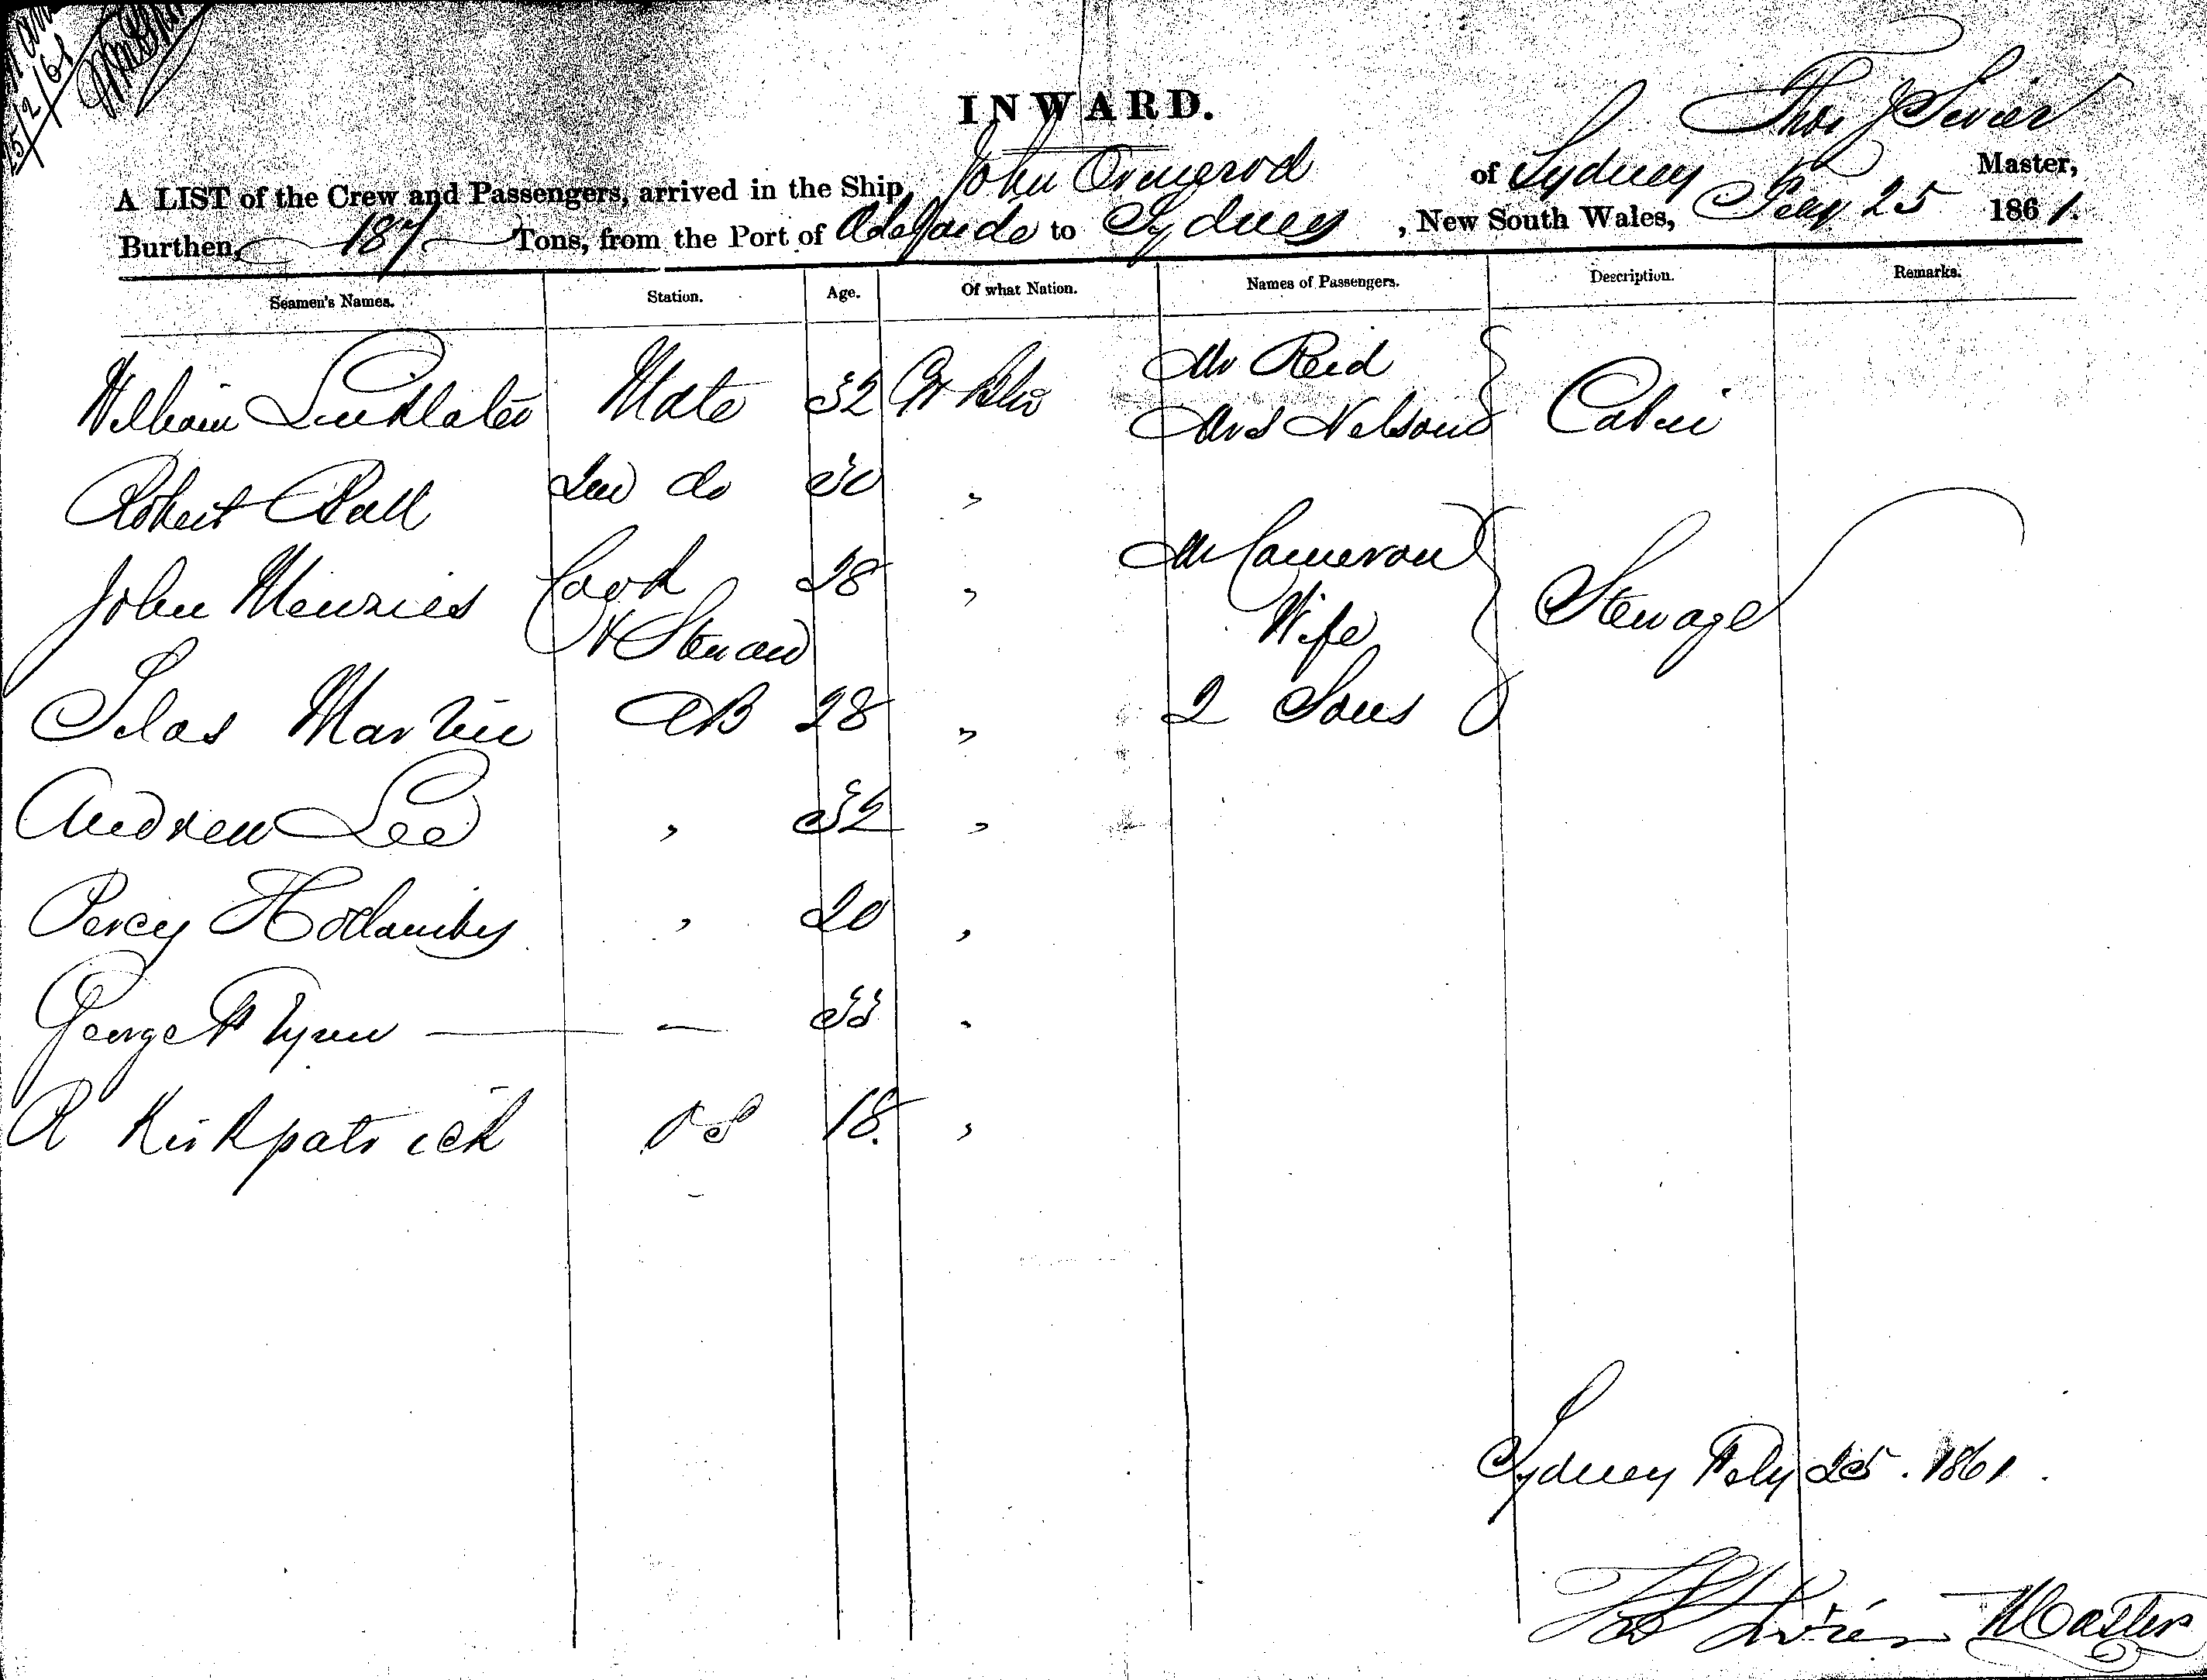 25/2/61
INWARD.
Thos J Sivier
A LIST of the Crew and Passengers, arrived in the Ship, John Ormerod of Sydney Master,
Burthen, 187 Tons, from the Port of Adelaide to Sydney, New South Wales, Feby 25 1861.
Seamen's Names. Station. Age. Of what Nation. Names of Passengers. Description. Remarks.
William Linklater Mate 32 Gt Mr Reid
Mrs Nelson Cabin
Robert Ball 2nd do 30 "
John Menzies Cook 28 " Mr Cameron
& Steward Wife Steerage
Silas Martin AB 28 " 2 Sons
Andrew Lee " 32 "
Percy " 20 "
George Flynn — — 33 "
R Kirkpatrick OS 18. "
Sydney Feby 25. 1861.
Master